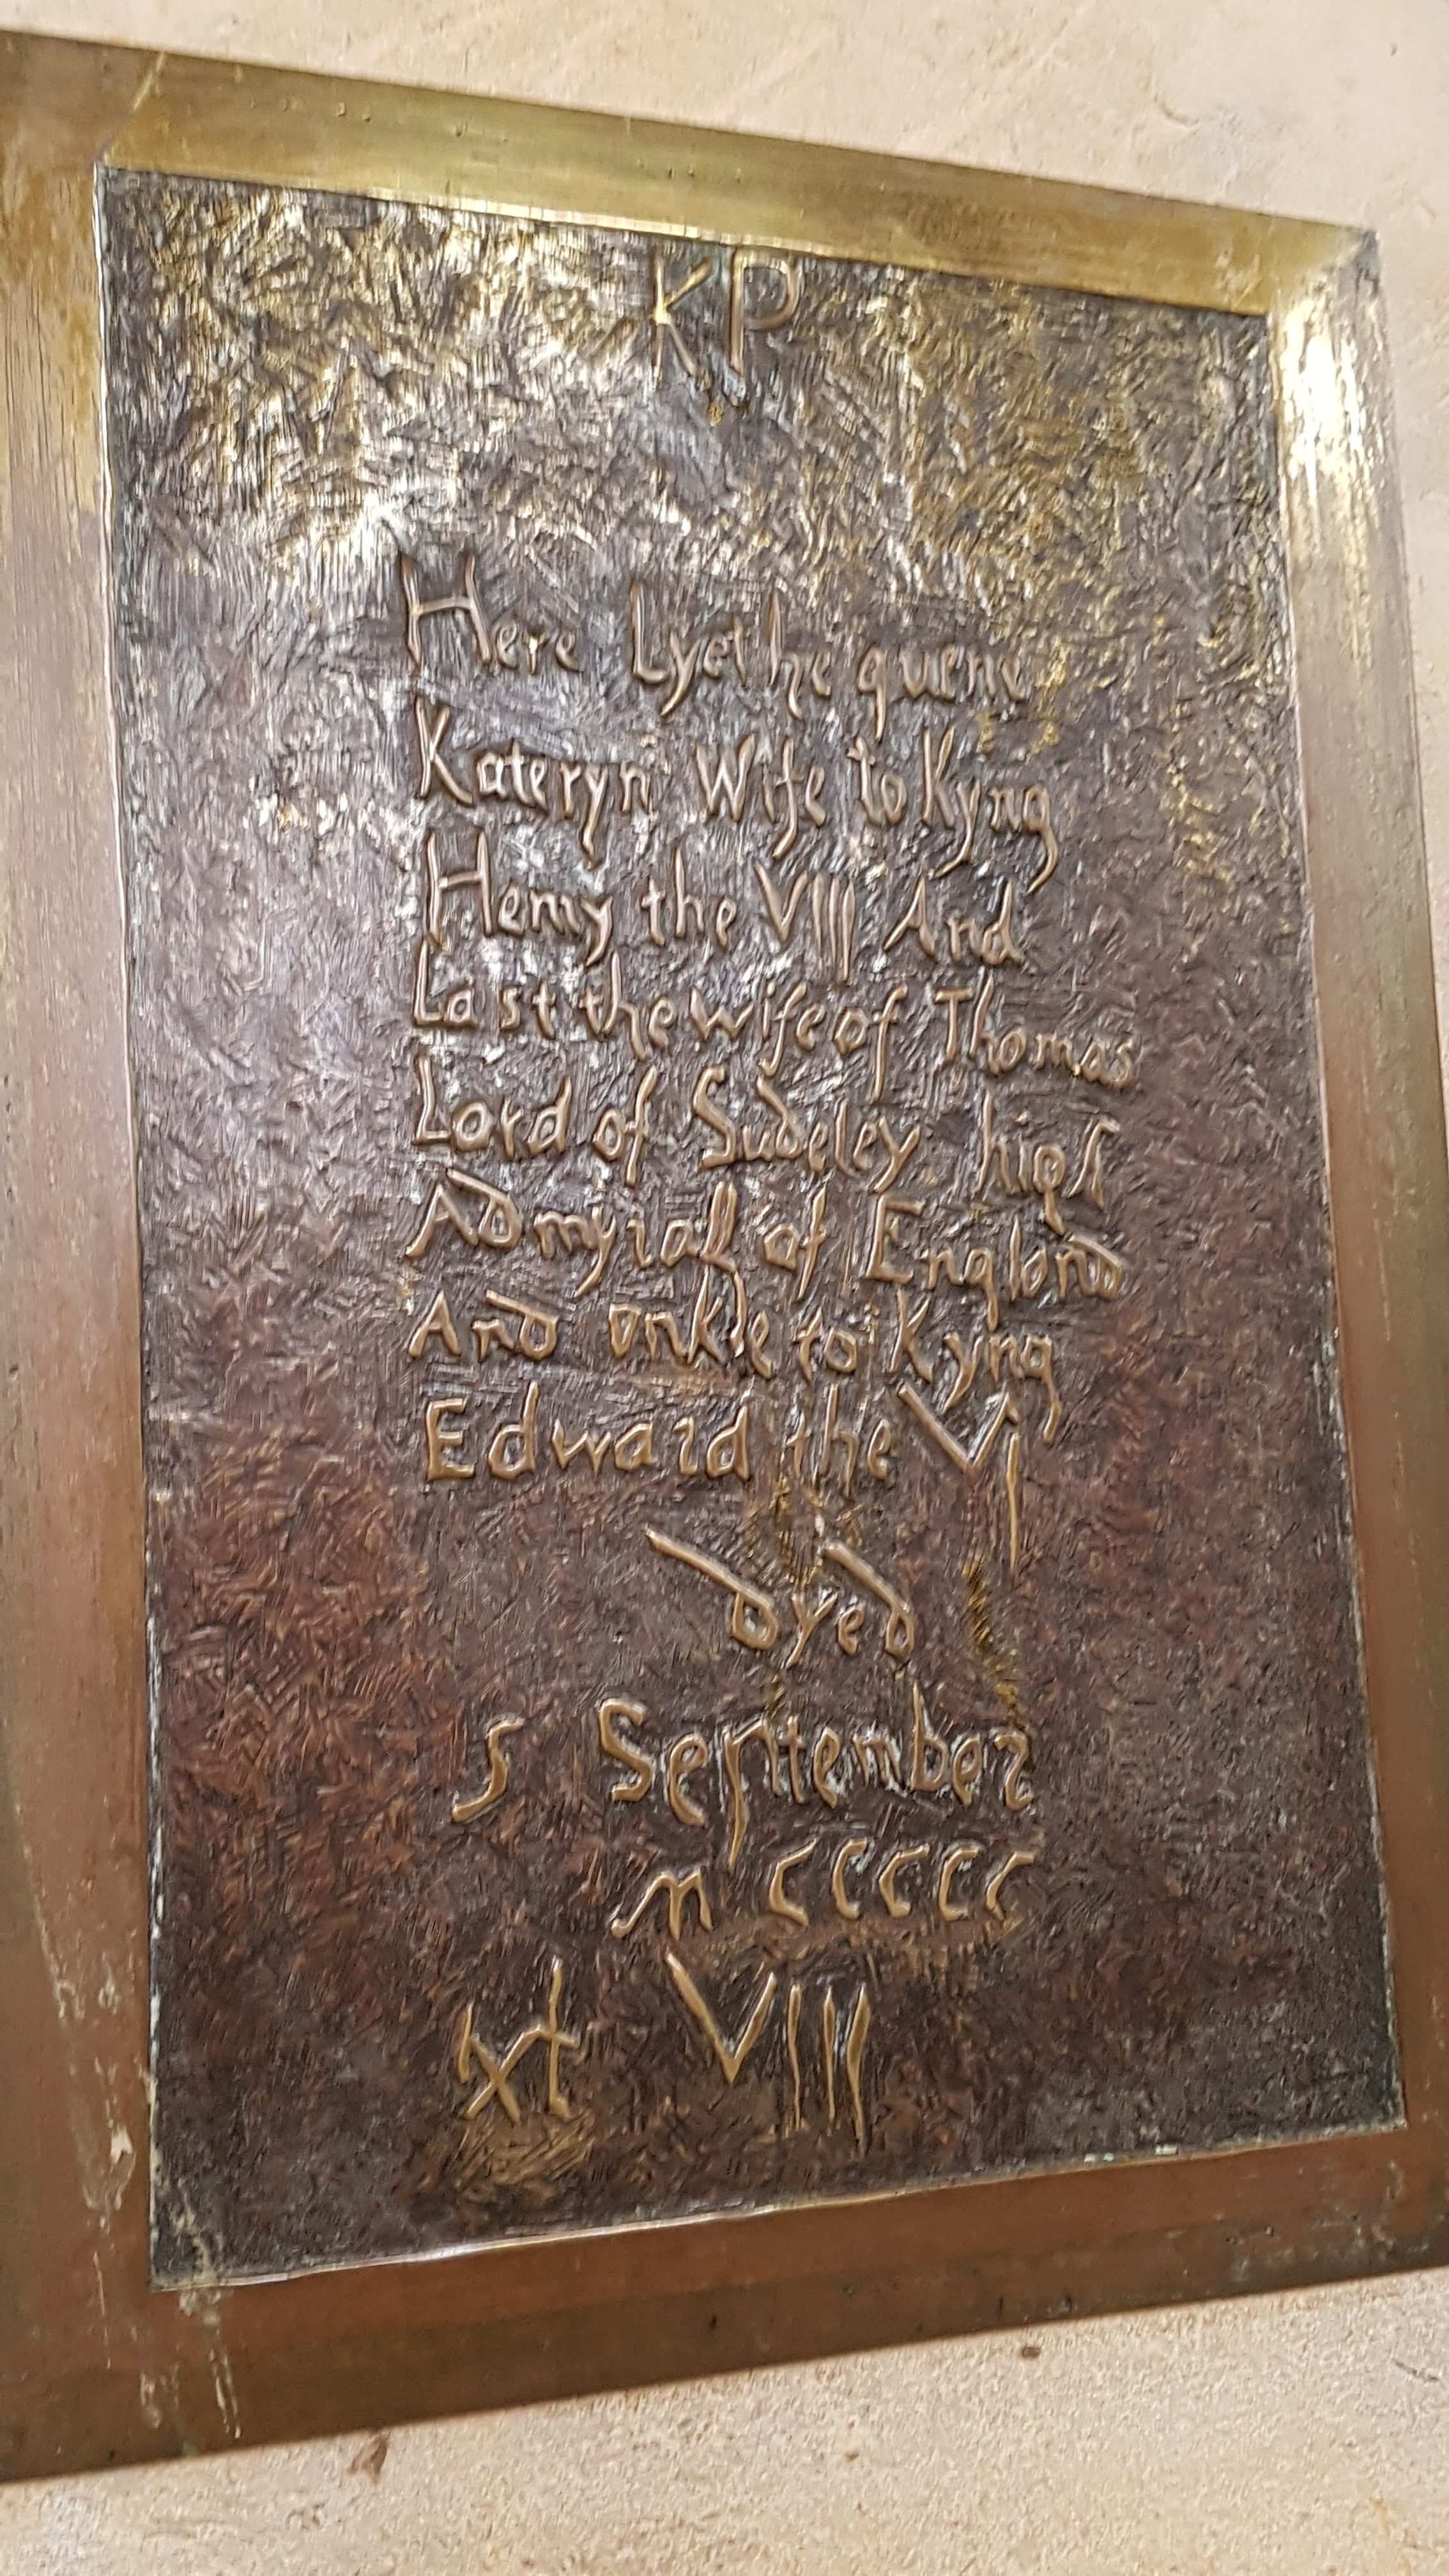 KP
Here Lyethe quene
Kateryn Wife to Kyng
Henry the VIII And
Last the wife of Thomas
Lord of Sudeley high
Admyrall of Englond
And onkle to Kyng
Edward the Vj
dyed
5 September
mccccc
xl VIII